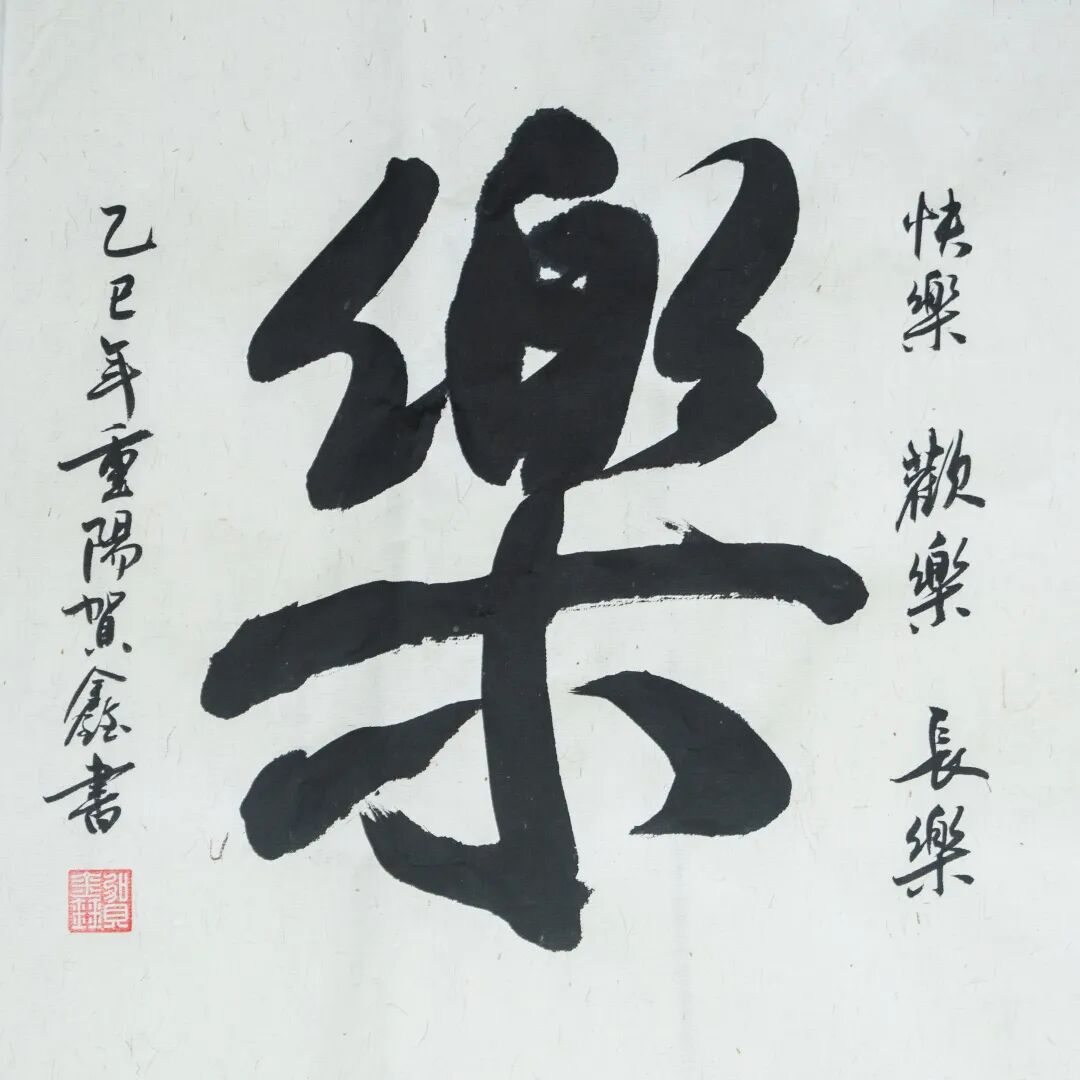 快樂 歡樂 長樂
樂
乙巳年重陽賀鑫書
賀鑫